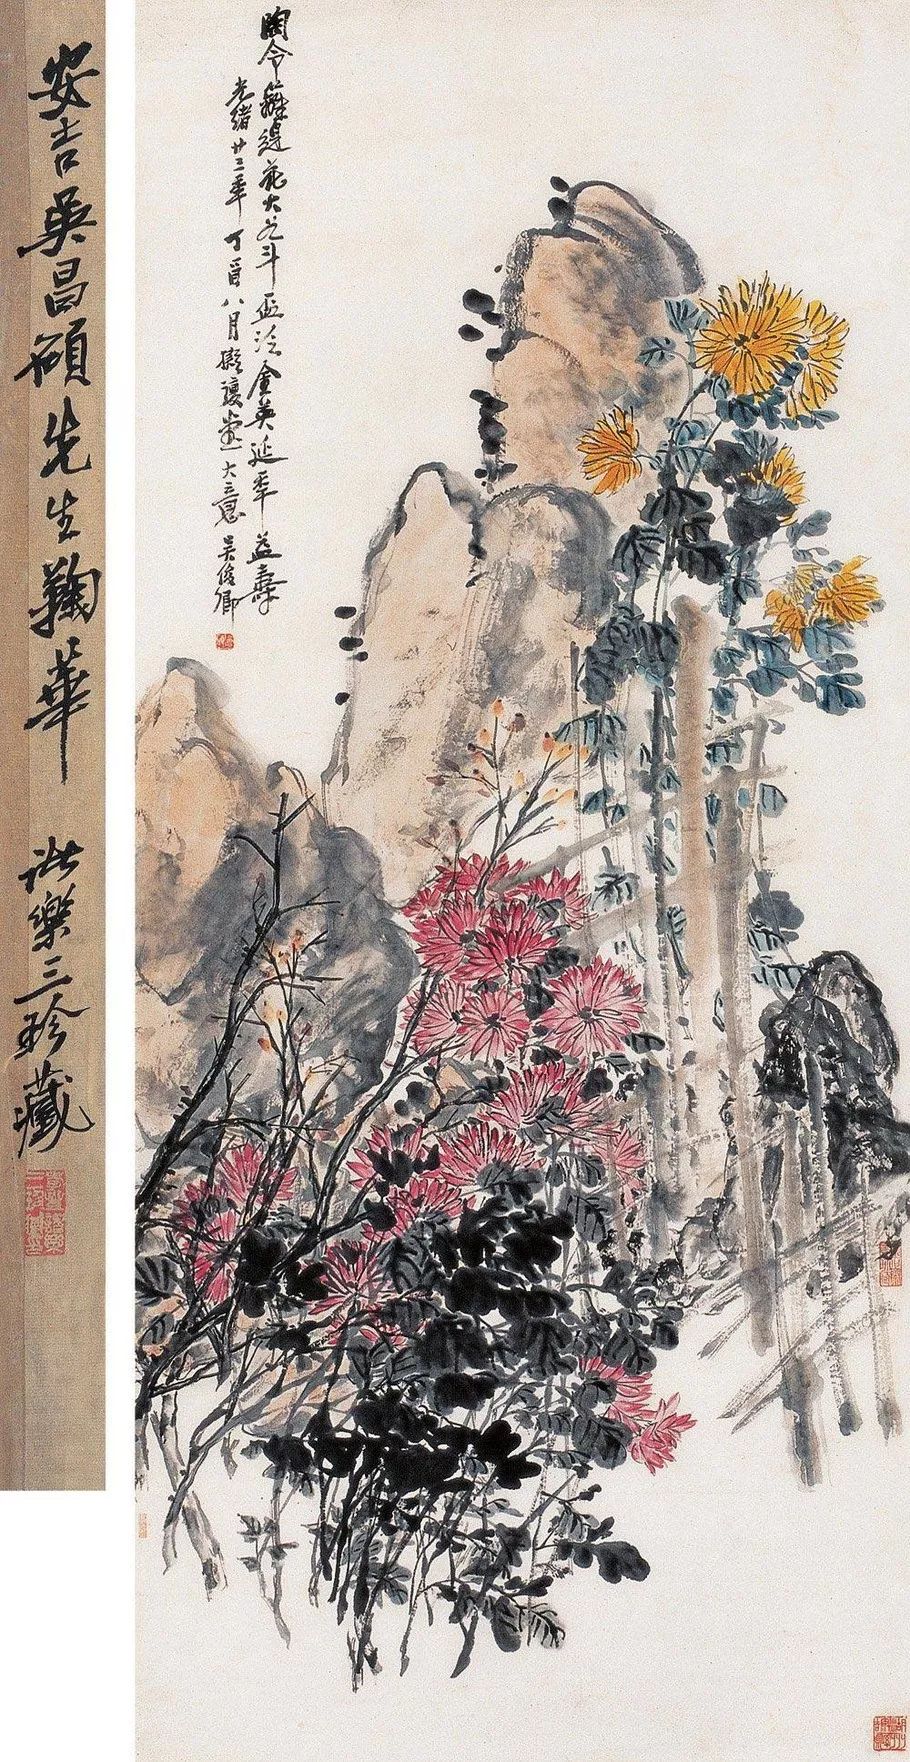 陶令籬邊花大如斗盃泛金英延年益壽
光緒廿三年丁酉八月擬復堂大意吳俊卿
安吉吳昌碩先生鞠華 諧樂三珍藏